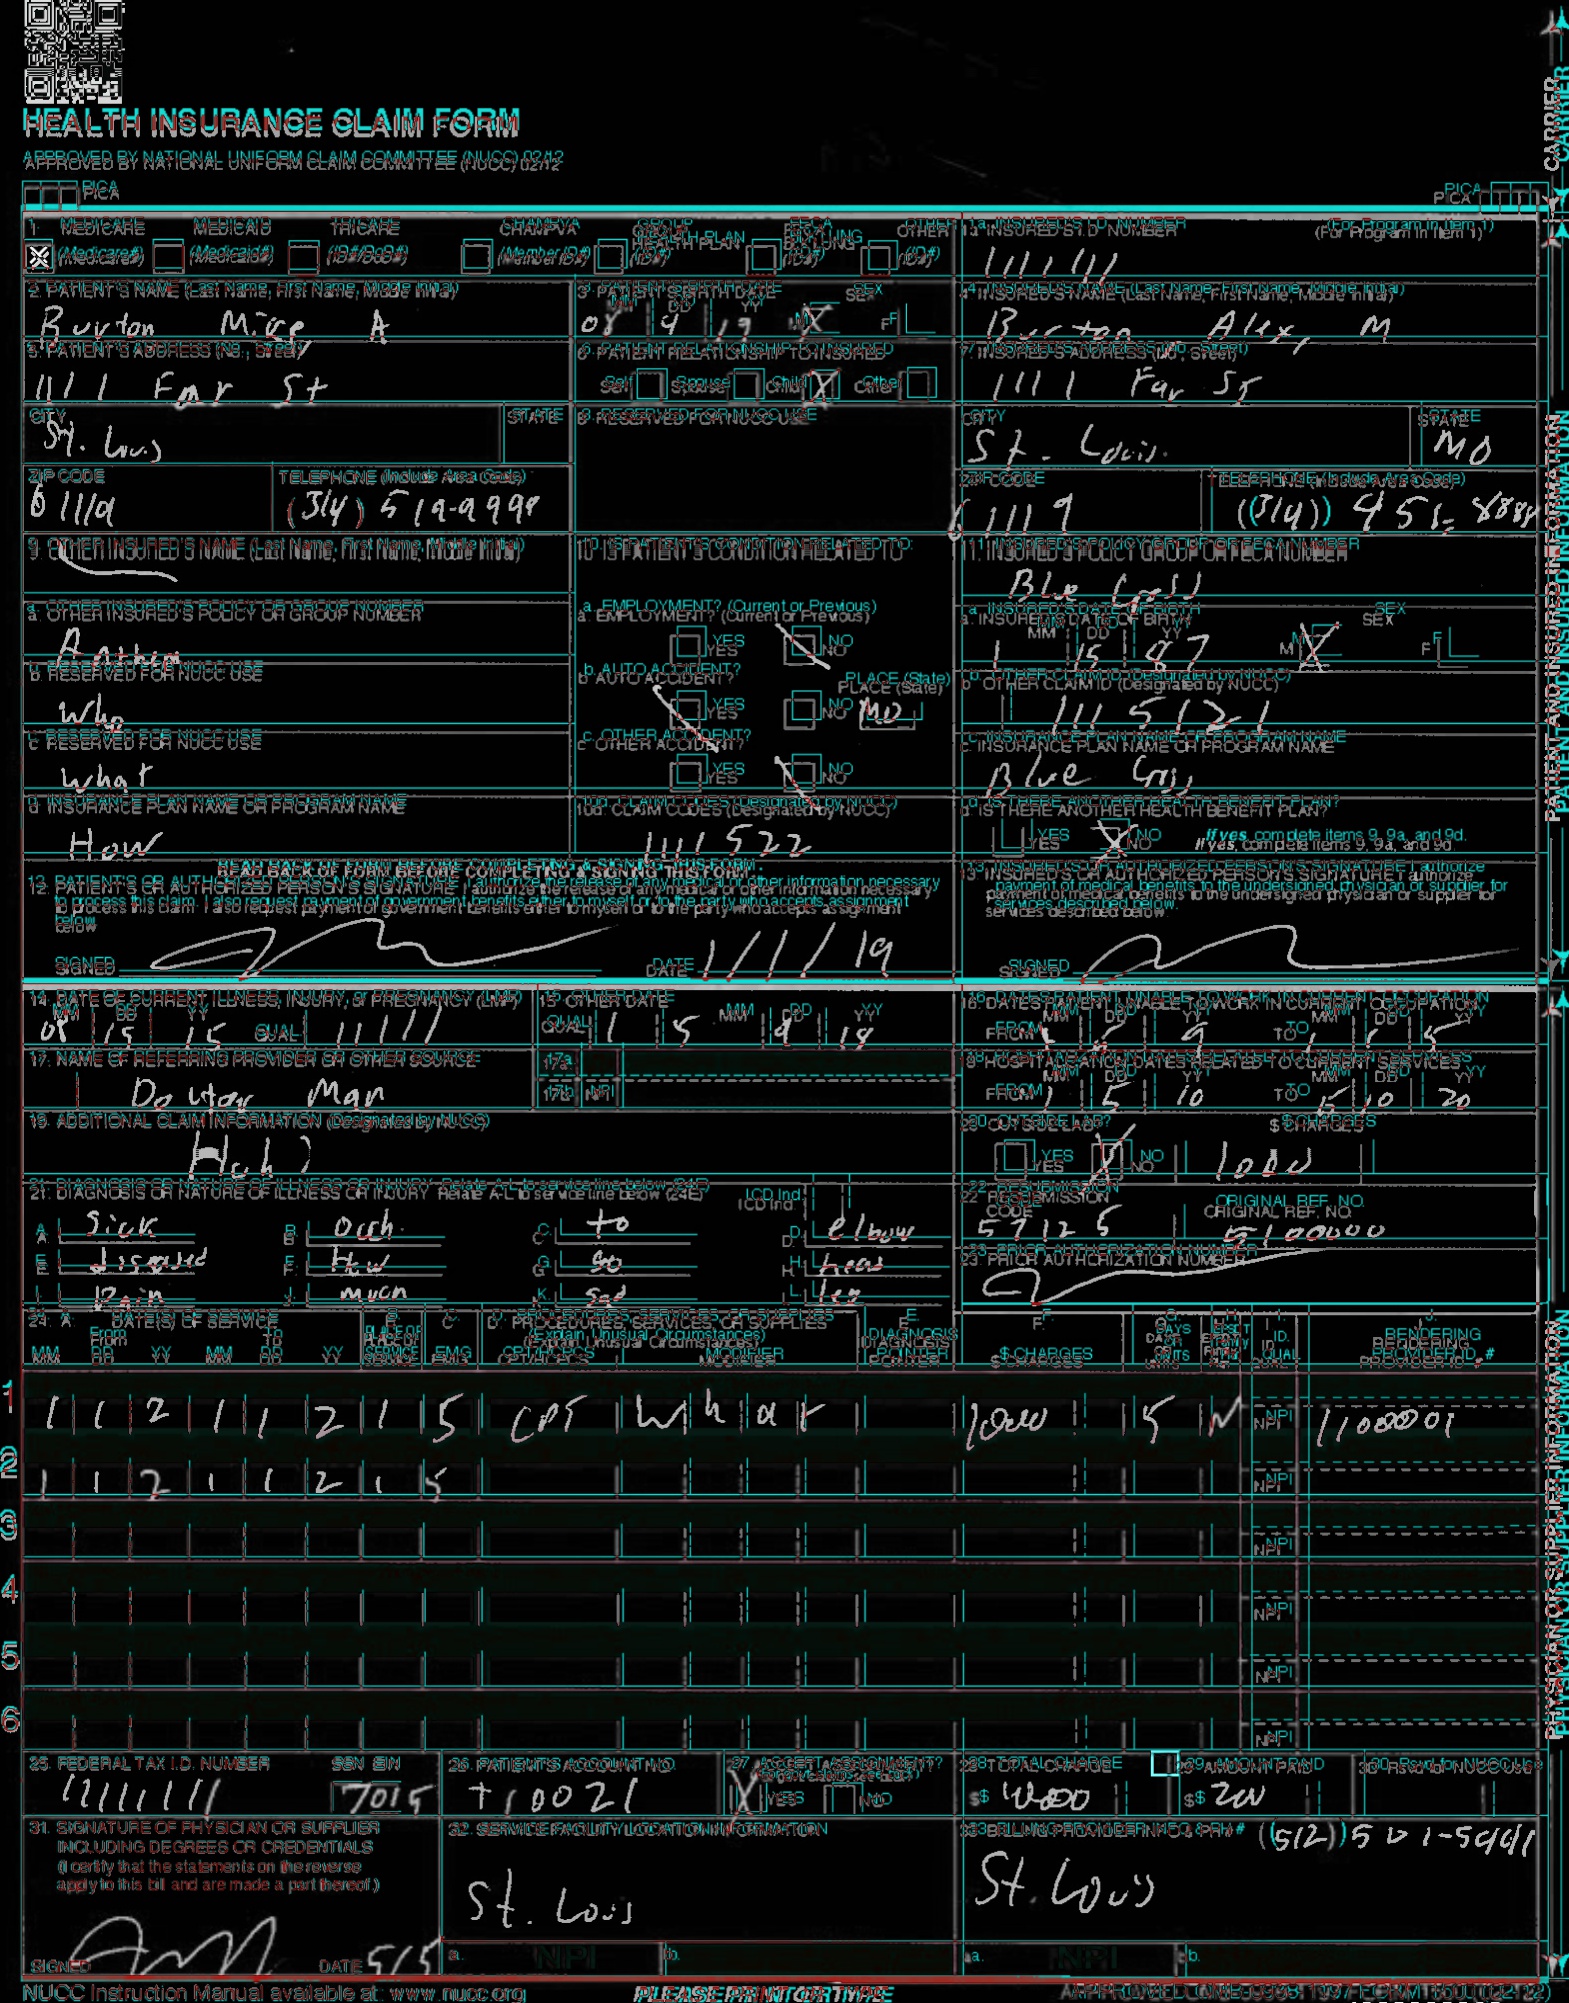 HEALTH INSURANCE CLAIM FORM
APPROVED BY NATIONAL UNIFORM CLAIM COMMITTEE (NUCC) 02/12
PICA PICA
1. MEDICARE MEDICAID TRICARE CHAMPVA GROUP HEALTH PLAN FECA BLK LUNG OTHER
(Medicare#) (Medicaid#) (ID#/DoD#) (Member ID#) (ID#) (ID#) (ID#)
1a. INSURED'S I.D. NUMBER (For Program in Item 1)
1111111
2. PATIENT'S NAME (Last Name, First Name, Middle Initial)
Burton Mike A
3. PATIENT'S BIRTH DATE SEX
MM DD YY
08 9 19 M X F
4. INSURED'S NAME (Last Name, First Name, Middle Initial)
Burton Alex, M
5. PATIENT'S ADDRESS (No., Street)
1111 Far St
6. PATIENT RELATIONSHIP TO INSURED
Self Spouse Child X Other
7. INSURED'S ADDRESS (No., Street)
1111 Far St
CITY STATE
St. Louis
8. RESERVED FOR NUCC USE
CITY STATE
St. Louis. MO
ZIP CODE TELEPHONE (Include Area Code)
61119 (314) 519-9999
ZIP CODE TELEPHONE (Include Area Code)
61119 (314)
9. OTHER INSURED'S NAME (Last Name, First Name, Middle Initial)
10. IS PATIENT'S CONDITION RELATED TO:
11. INSURED'S POLICY GROUP OR FECA NUMBER
Blue Cross
a. OTHER INSURED'S POLICY OR GROUP NUMBER
Anthem
a. EMPLOYMENT? (Current or Previous)
YES NO
a. INSURED'S DATE OF BIRTH SEX
MM DD YY
1 15 87 M X F
b. RESERVED FOR NUCC USE
who
b. AUTO ACCIDENT? PLACE (State)
YES NO MO
b. OTHER CLAIM ID (Designated by NUCC)
1115121
c. RESERVED FOR NUCC USE
what
c. OTHER ACCIDENT?
YES NO
c. INSURANCE PLAN NAME OR PROGRAM NAME
Blue Cross
d. INSURANCE PLAN NAME OR PROGRAM NAME
How
10d. CLAIM CODES (Designated by NUCC)
1111522
d. IS THERE ANOTHER HEALTH BENEFIT PLAN?
YES X NO If yes, complete items 9, 9a, and 9d.
READ BACK OF FORM BEFORE COMPLETING & SIGNING THIS FORM.
12. PATIENT'S OR AUTHORIZED PERSON'S SIGNATURE I authorize the release of any medical or other information necessary
to process this claim. I also request payment of government benefits either to myself or to the party who accepts assignment
below.
SIGNED DATE 1/1/19
13. INSURED'S OR AUTHORIZED PERSON'S SIGNATURE I authorize
payment of medical benefits to the undersigned physician or supplier for
services described below.
SIGNED
14. DATE OF CURRENT ILLNESS, INJURY, or PREGNANCY (LMP)
MM DD YY
08 15 15 QUAL. 11111
15. OTHER DATE
QUAL. MM DD YY
1 5 9 18
16. DATES PATIENT UNABLE TO WORK IN CURRENT OCCUPATION
MM DD YY MM DD YY
FROM TO
17. NAME OF REFERRING PROVIDER OR OTHER SOURCE
Doctor Man
17a.
17b. NPI
18. HOSPITALIZATION DATES RELATED TO CURRENT SERVICES
MM DD YY MM DD YY
FROM 1 5 10 TO 15 10 20
19. ADDITIONAL CLAIM INFORMATION (Designated by NUCC)
Huh?
20. OUTSIDE LAB? $ CHARGES
YES X NO 1000
21. DIAGNOSIS OR NATURE OF ILLNESS OR INJURY Relate A-L to service line below (24E) ICD Ind.
A. Sick B. Ouch. C. to D. elbow
E. diseased F. How G. so H. head
I. Pain J. much K. sad L. leg
22. RESUBMISSION
CODE ORIGINAL REF. NO.
57125 5100000
23. PRIOR AUTHORIZATION NUMBER
24. A. DATE(S) OF SERVICE B. C. D. PROCEDURES, SERVICES, OR SUPPLIES E. F. G. H. I. J.
From To PLACE OF (Explain Unusual Circumstances) DIAGNOSIS DAYS OR ID. RENDERING
MM DD YY MM DD YY SERVICE EMG CPT/HCPCS MODIFIER POINTER $ CHARGES UNITS QUAL. PROVIDER ID. #
1 1 1 2 1 1 2 1 5 CPT w h a t 1000 5 N NPI 1100001
2 1 1 2 1 1 2 1 5 NPI
3 NPI
4 NPI
5 NPI
6 NPI
25. FEDERAL TAX I.D. NUMBER SSN EIN
11111111 7015
26. PATIENT'S ACCOUNT NO.
T10021
27. ACCEPT ASSIGNMENT?
X YES NO
28. TOTAL CHARGE
$
29. AMOUNT PAID
$ 200
30. Rsvd for NUCC Use
31. SIGNATURE OF PHYSICIAN OR SUPPLIER
INCLUDING DEGREES OR CREDENTIALS
(I certify that the statements on the reverse
apply to this bill and are made a part thereof.)
SIGNED DATE 5/5
32. SERVICE FACILITY LOCATION INFORMATION
St. Louis
a. NPI b.
33. BILLING PROVIDER INFO & PH # (512)
St. Louis
a. NPI b.
NUCC Instruction Manual available at: www.nucc.org PLEASE PRINT OR TYPE
CARRIER
PATIENT AND INSURED INFORMATION
PHYSICIAN OR SUPPLIER INFORMATION